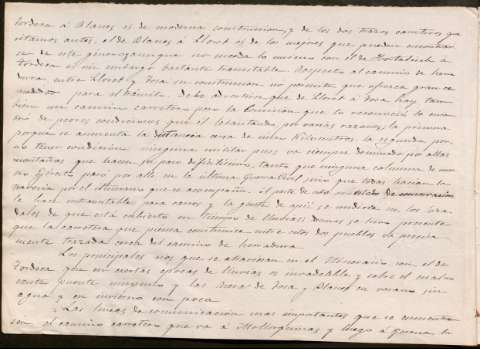 Tordera á Blanes es de moderna construccion, y de los dos trozos carreteros que
citamos antes, el de Blanes á Lloret es de los mejores que pueden encontrar
se de este género, aunque no suceda lo mismo con el de Hostalrich á
Tordera es sin embargo bastante transitable. Respecto al camino de herra
dura entre Lloret y Tosa su construccion no permite que ofrezca gran co
modidad para el tránsito. Debo advertir que de Lloret á Tosa hay tam
bien un camino carretero pero la Comision que lo reconoció lo encon
tró de peores condiciones que el por varias razones, la primera
porque se aumenta la distancia cerca de nueve Kilómetros, la segunda por
no tener condiciones ningunas militar pues va siempre dominado por altas
montañas que hacen su paso dificilísimo, tanto que ninguna columna de nues
tro Ejército pasó por allí en la última Guerra Civil sino que todas hacian la
travesía por el itinerario que se acompaña. Á parte de esto, su estado de conservacion
lo hace intransitable para carros y la gente de aquí se undiría en los are
nales de que está cubierto en tiempo de lluvias. Demas se tuvo presente
que la carretera que piensa construirse entre estos dos pueblos va precisa
mente trazada cerca del camino de herradura.
Los principales rios que se atraviesan en el Itinerario son el de
Tordera que en ciertas épocas de lluvias es invadeable y sobre el cual
existe puente ninguno y las rieras de Tosa y Blanes en verano sin
agua y en invierno con poca.
Las lineas de comunicacion mas importantes que se encuentran
son el camino carretero que va á Mallorquinas y luego á Gerona, la